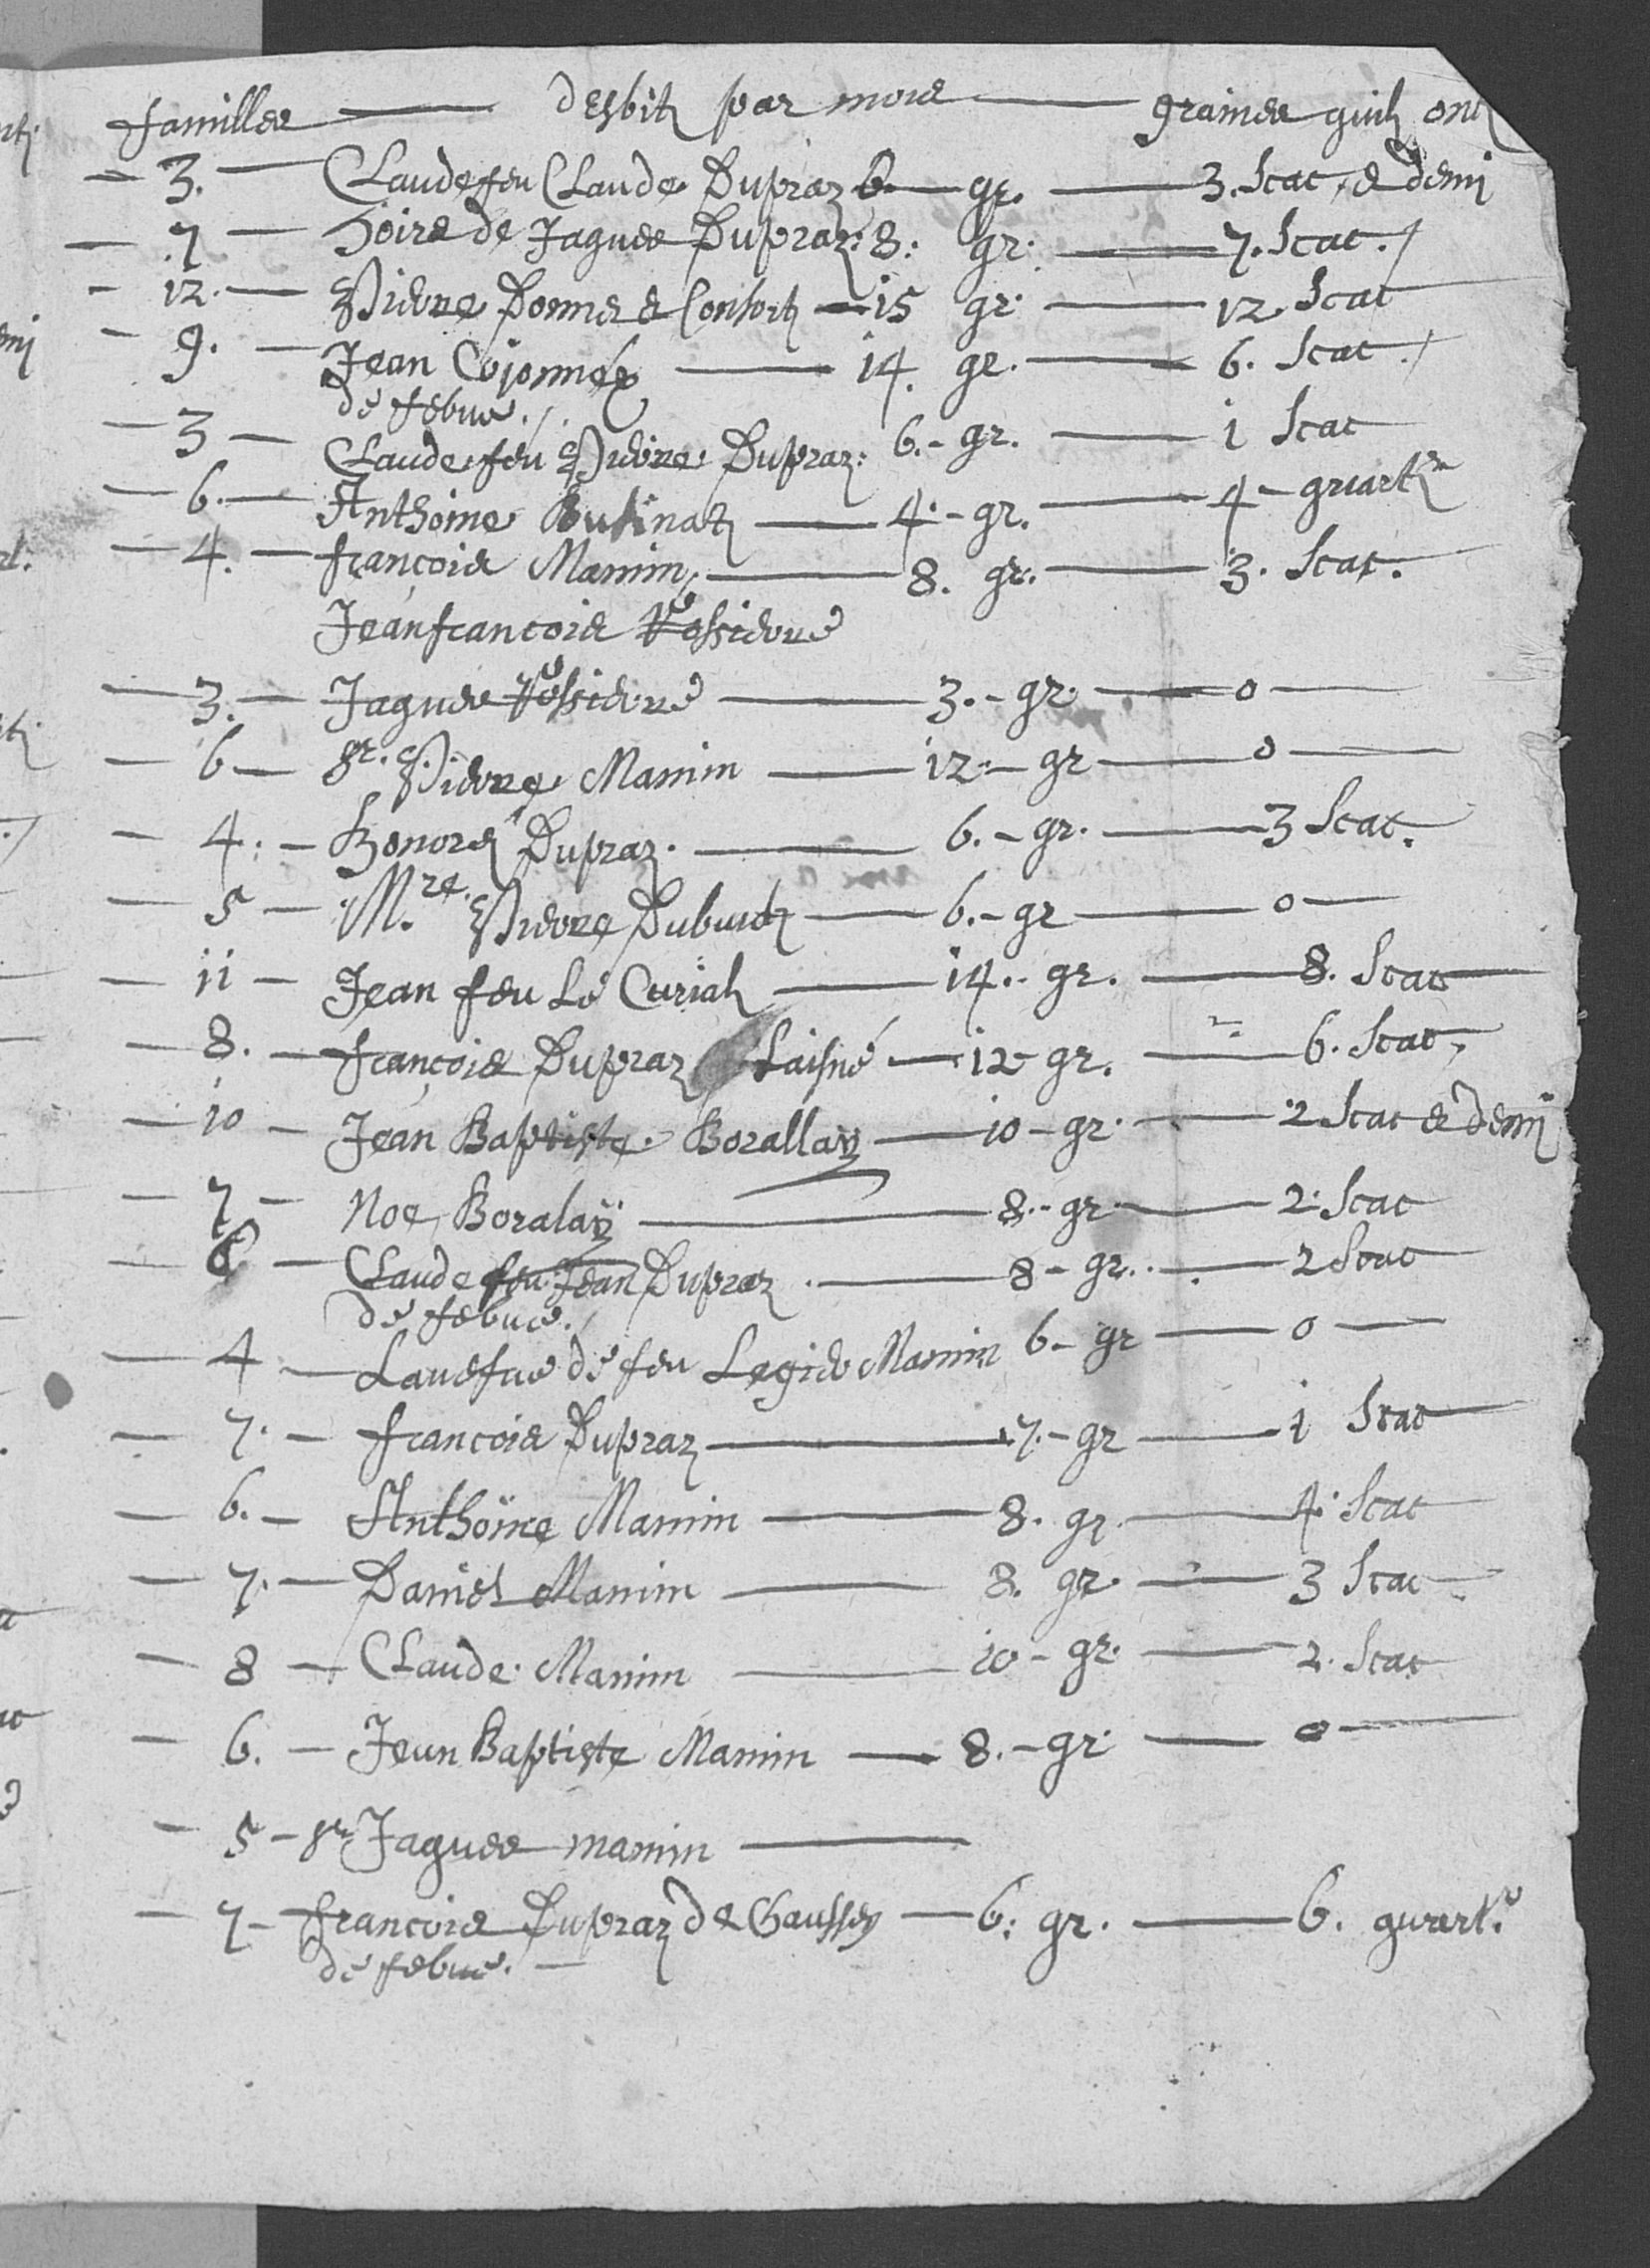 familles — desbitz par mois — graines quilz ont
— 3. — Claude feu Claude Dupraz 6 — gr. — 3. Scat, & demi
— 7 — hoirs de Jaques Dupraz: 8: gr. — 7. Scat. /
- 12. — Pierre Donnet & Consortz — 15 gr. — 12. Scat
- 9. — Jean Cojonnex — 14. gr. — 6. Scat. /
de febue. /.
— 3 — Claude feu Pierre Dupraz: 6. - gr. — 1 Scat
— 6. — Anthoine Butinatz — 4. - gr. — 4 - quartz
— 4. — françois Mamin, — 8. gr. — 3. Scat.
Jeanfrancois Vessiere
— 3. — Jaques Vessiere — 3. - gr. — 0 —
— 6 — Sr. Pierre Mamin — 12. - gr — 0 —
— 4. — Honoré Dupraz. — 6. - gr. — 3 Scat.
— 5 — M.re Pierre Dubuitz — 6. - gr — 0 —
— 11 — Jean feu Le Curialz — 14. - gr. — 8. Scat
— 8. — françois Dupraz Laisné — 12 - gr. — 6. Scat,
— 10 — Jean Baptiste Borallay — 10 - gr. — 2 Scat & demi
— 7 — Noe Boralaÿ — 8. - gr. — 2. Scat
— 6 — Claude feu Jean Dupraz. — 8 - gr. — 2 Scat
de febue. /
— 4 — Lauefue de feu Legier Mamin 6 - gr — 0 —
— 7. — francois Dupraz — 7. - gr — 1 Scat
— 6. — Anthoine Mamin — 8. gr. — 4. Scat
— 7. — Daniel Mamin — 8. gr. — 3 Scat
— 8 — Claude Mamin — 10 - gr. — 2. Scat
— 6. — Jean Baptiste Mamin — 8. - gr. — 0 —
— 5 - Sr Jaques mamin —
— 7 - francois Dupraz de Gaussey — 6: gr. — 6. quart.
de febue. —